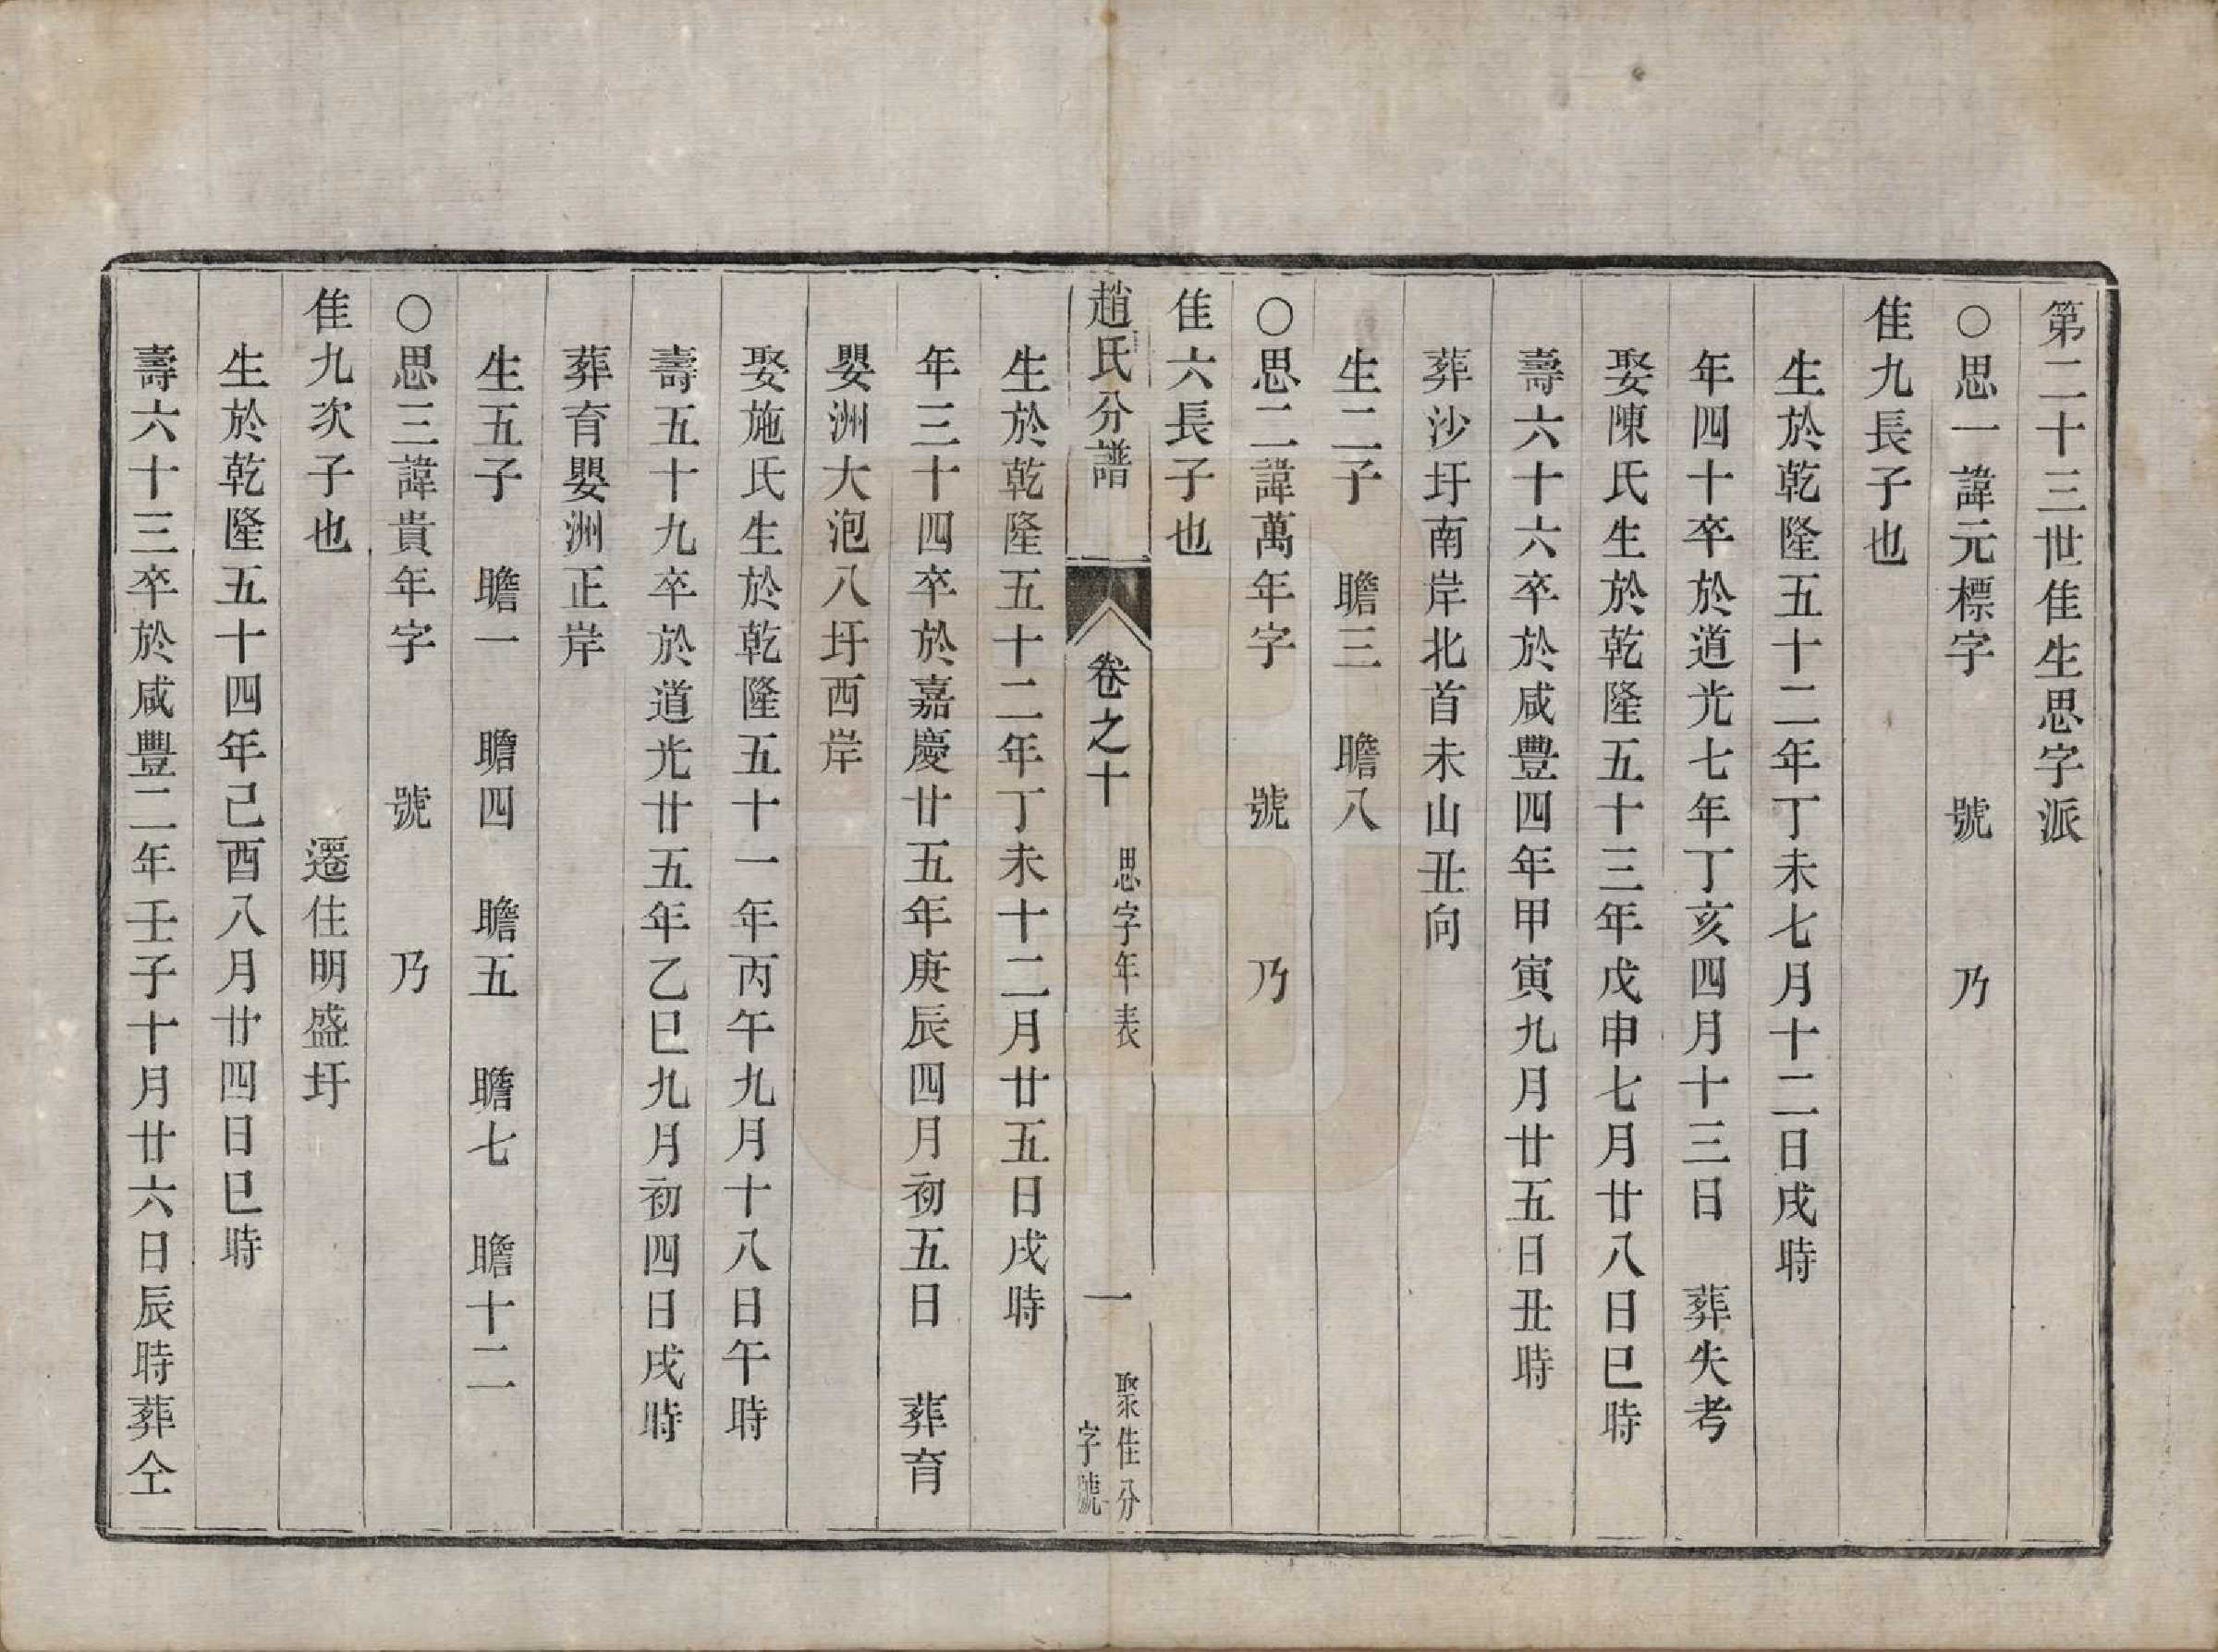 第二十三世隹生思字派
○思一諱元標字　號　乃
隹九長子也
生於乾隆五十二年丁未七月十二日戌時
年四十卒於道光七年丁亥四月十三日　葬失考
娶陳氏生於乾隆五十三年戊申七月廿八日巳時
壽六十六卒於咸豐四年甲寅九月廿五日丑時
葬沙圩南岸北首未山丑向
生二子　瞻三　瞻八
○思二諱萬年字　號　乃
隹六長子也
趙氏分譜　卷之十　思字年表　一　聚隹分字號
生於乾隆五十二年丁未十二月廿五日戌時
年三十四卒於嘉慶廿五年庚辰四月初五日　葬育
嬰洲大泡八圩西岸
娶施氏生於乾隆五十一年丙午九月十八日午時
壽五十九卒於道光廿五年乙巳九月初四日戌時
葬育嬰洲正岸
生五子　瞻一　瞻四　瞻五　瞻七　瞻十二
○思三諱貴年字　號　乃
隹九次子也　遷住明盛圩
生於乾隆五十四年己酉八月廿四日巳時
壽六十三卒於咸豐二年壬子十月廿六日辰時葬仝